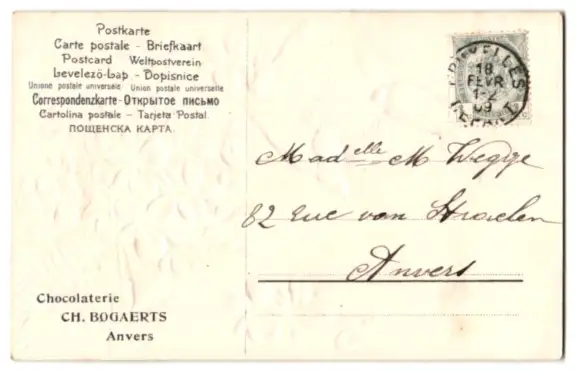 Postkarte
Carte postale - Briefkaart
Postcard Weltpostverein
Levelező-Lap - Dopisnice
Unione postale universale Union postale universelle
Correspondenzkarte - Открытое письмо
Cartolina postale - Tarjeta Postal
ПОЩЕНСКА КАРТА
BRUXELLES 1
18
FEVR
1-2
09
DEPART
Madelle M Wegge
82 Rue van Straelen
Anvers
Chocolaterie
CH. BOGAERTS
Anvers